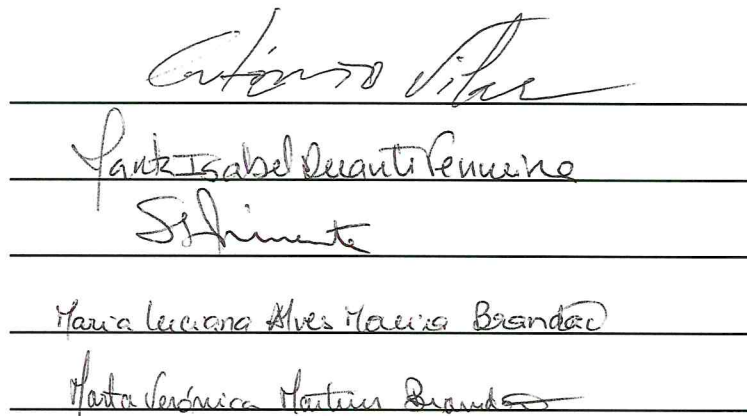 António Vilar
Isabel Duarte
Pimenta
Maria Luciana Alves Moreira Brandão
Marta Verónica Martins Brandão